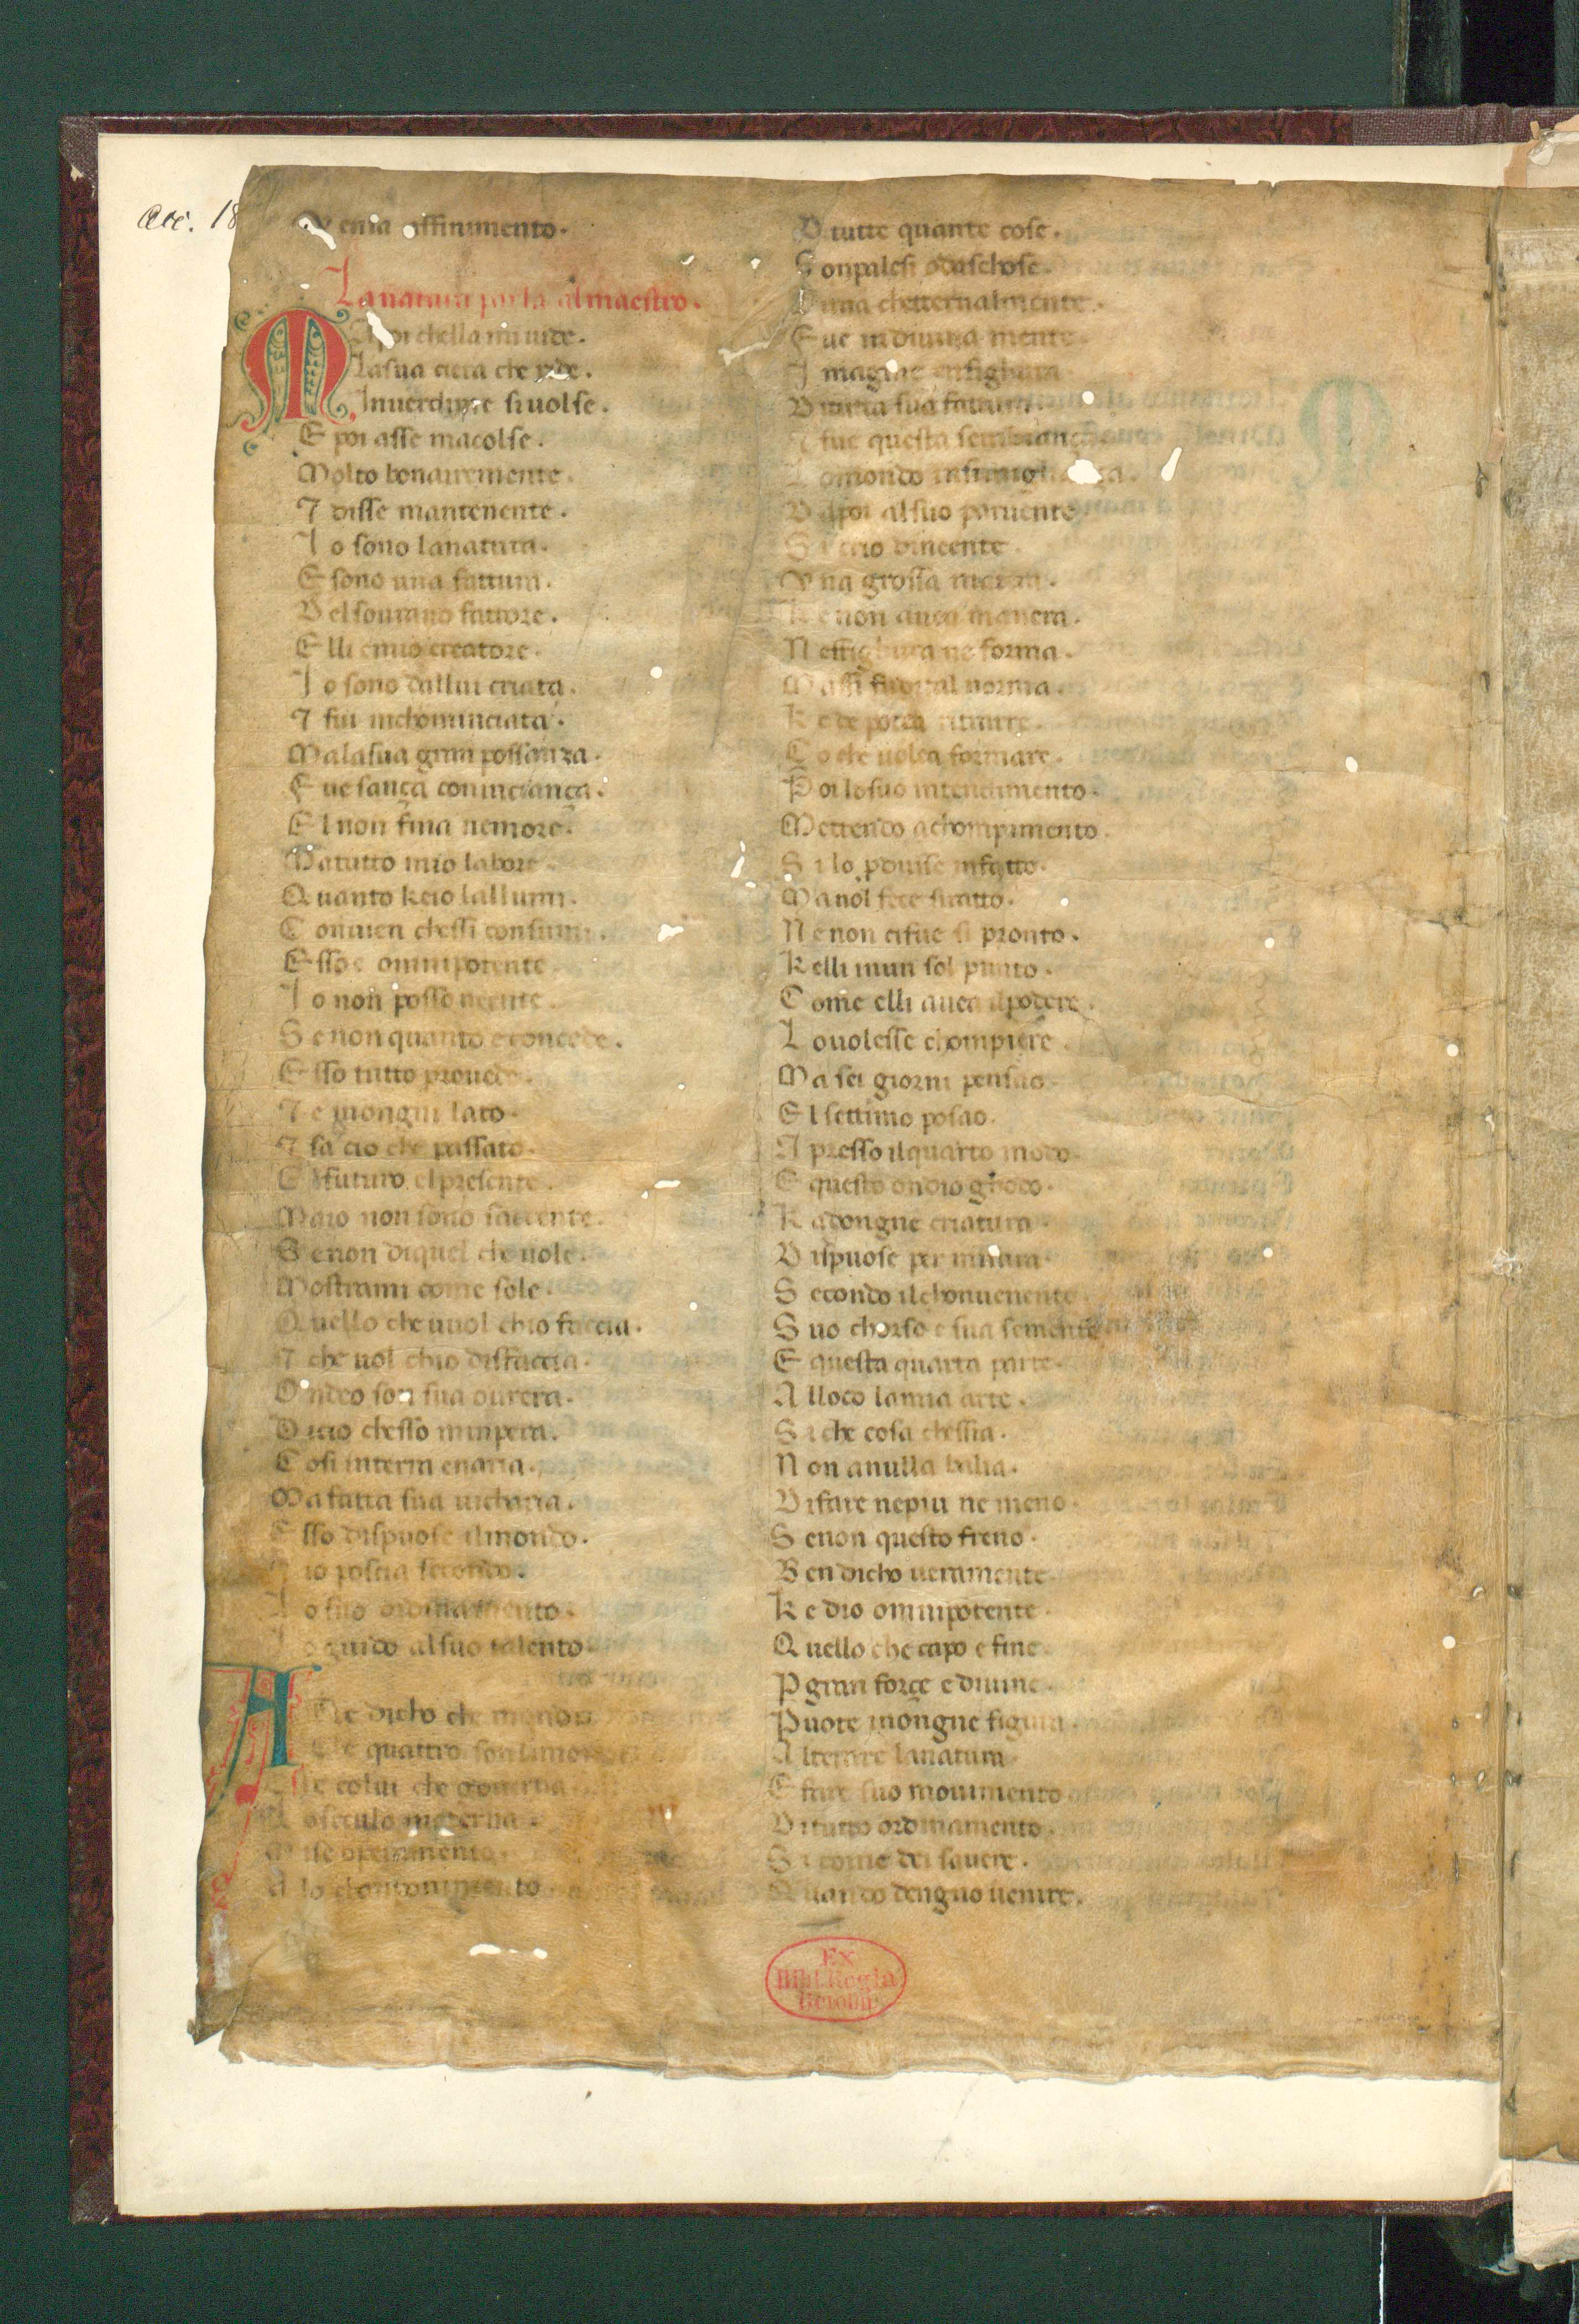 Acc. 18
enia affinimento.
La natura parla al maestro.
M
A poi chella mi uide.
Lasua ciera che ride.
Inuerdime siuolse.
E poi asse macolse.
Molto bonairemente.
7 disse mantenente.
Io sono lanatura.
E sono una fattura.
Del sourano fattore.
E lli e mio creatore.
Io sono dallui criata.
7 fui inchominciata.
Malasua gran possanza.
F ue sança comincianca.
E l non fina nemore.
Matutto mio labore.
Quanto keio lallumi.
Conuien chessi consumi.
E sso e omnipotente
Io non posso neente.
Se non quanto e concede.
E sso tutto prouede.
7 e inongni lato.
7 sa cio che passato.
E lfuturo elpresente.
Maio non sono saccente.
Senon diquel che uole.
Mostrami come sole.
Quello che uuol chio faccia.
7 che uol chio disfaccia.
Ondeo son sua ourera.
Dicio chesso mimpera.
Cosi interra enaria.
Ma fatta sua uicharia.
E sso dispuose ilmondo.
io poscia secondo.
Lo suo ordinamento.
Lo guido alsuo talento.
A
te dicho che
Che quattro son
colui che gouerna
Loseculo
A lo chominciamento
Di tutte quante cose.
Son palesi odaschose.
L una chetternalmente.
F ue indiuina mente
I magine enfighura
Ditutta sua fattura.
E fue questa sembianca
Lo mondo insimigl
Dapoi alsuo paruente
Si crio dineente
Una grossa matera.
Ke non auea manera.
Ne ffighura ne forma.
Massi fu dital norma.
Ke de potea ritrare.
Co che uolea formare.
Poi losuo intendimento.
Mettendo achompimento.
Si lo produsse infatto.
Ma nol fece siratto.
Ne non cifue si pronto.
Kelli inun sol punto.
Come elli auea ilpodere.
Lo uolesse chompiere
Ma sei giorni pensao.
E l settimo posao.
Apresso ilquarto modo.
E questo ondio ghodo.
Kadongne criatura
Dispuose per misura.
Secondo ilchonuenente
Suo chorso e sua semente
E questa quarta parte.
A lloco lamia arte.
Si che cosa chessia.
Non a nulla balia.
Di fare nepiu ne meno.
Senon questo freno.
Ben dicho ueramente
Ke dio omnipotente
Quello che capo e fine.
P gran force e diuine.
Puote inongne figura
Alterare lanatura.
E fare suo mouimento
Ditutto ordinamento.
Si come dei sauere.
Quando dengno uenire.
Ex
Bibl. Regia
Berolin.